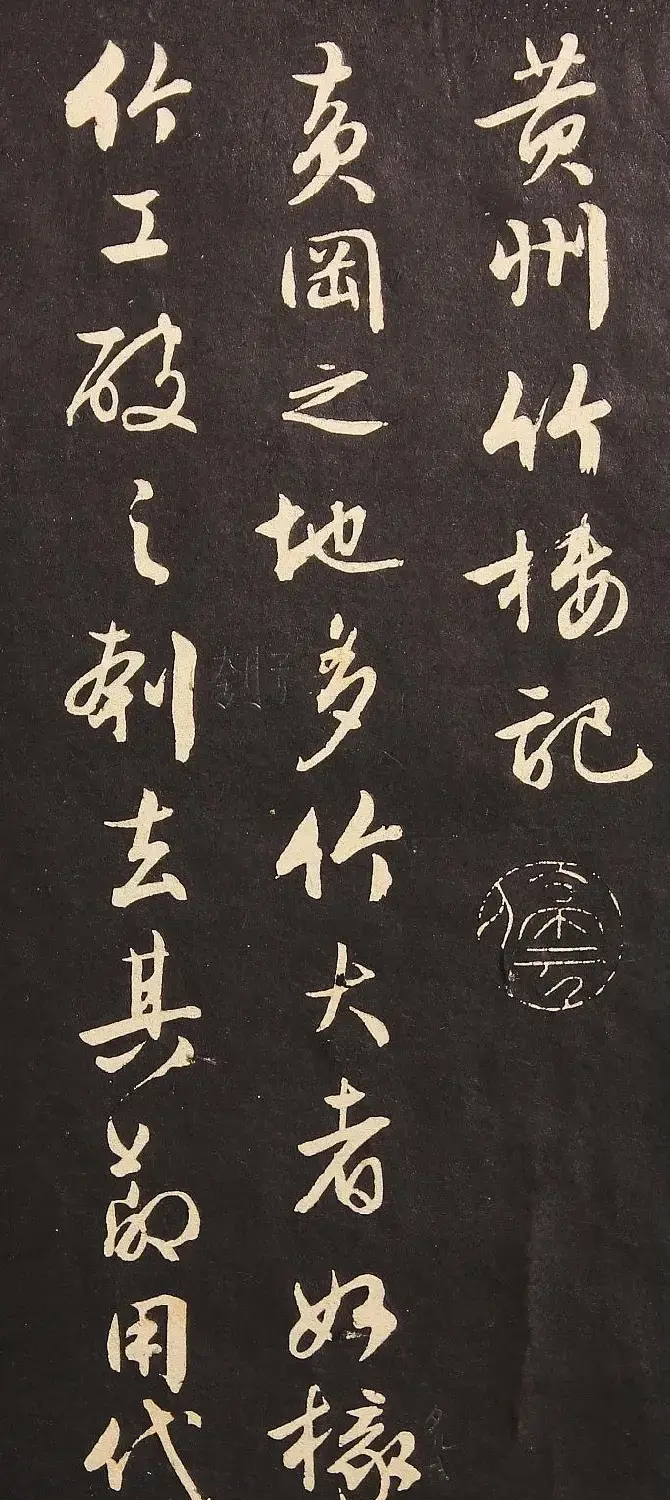 黄州竹楼記
黄岡之地多竹大者如椽
竹工破之刳去其節用代